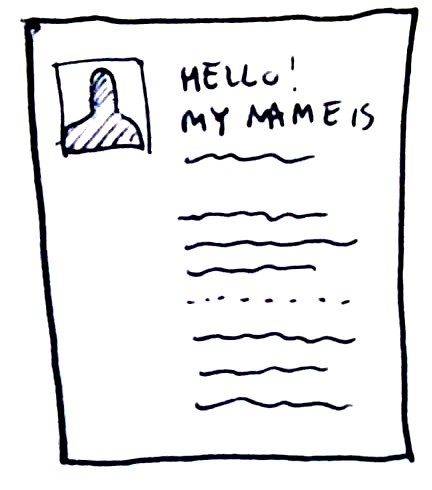 HELLO!
MY NAME IS